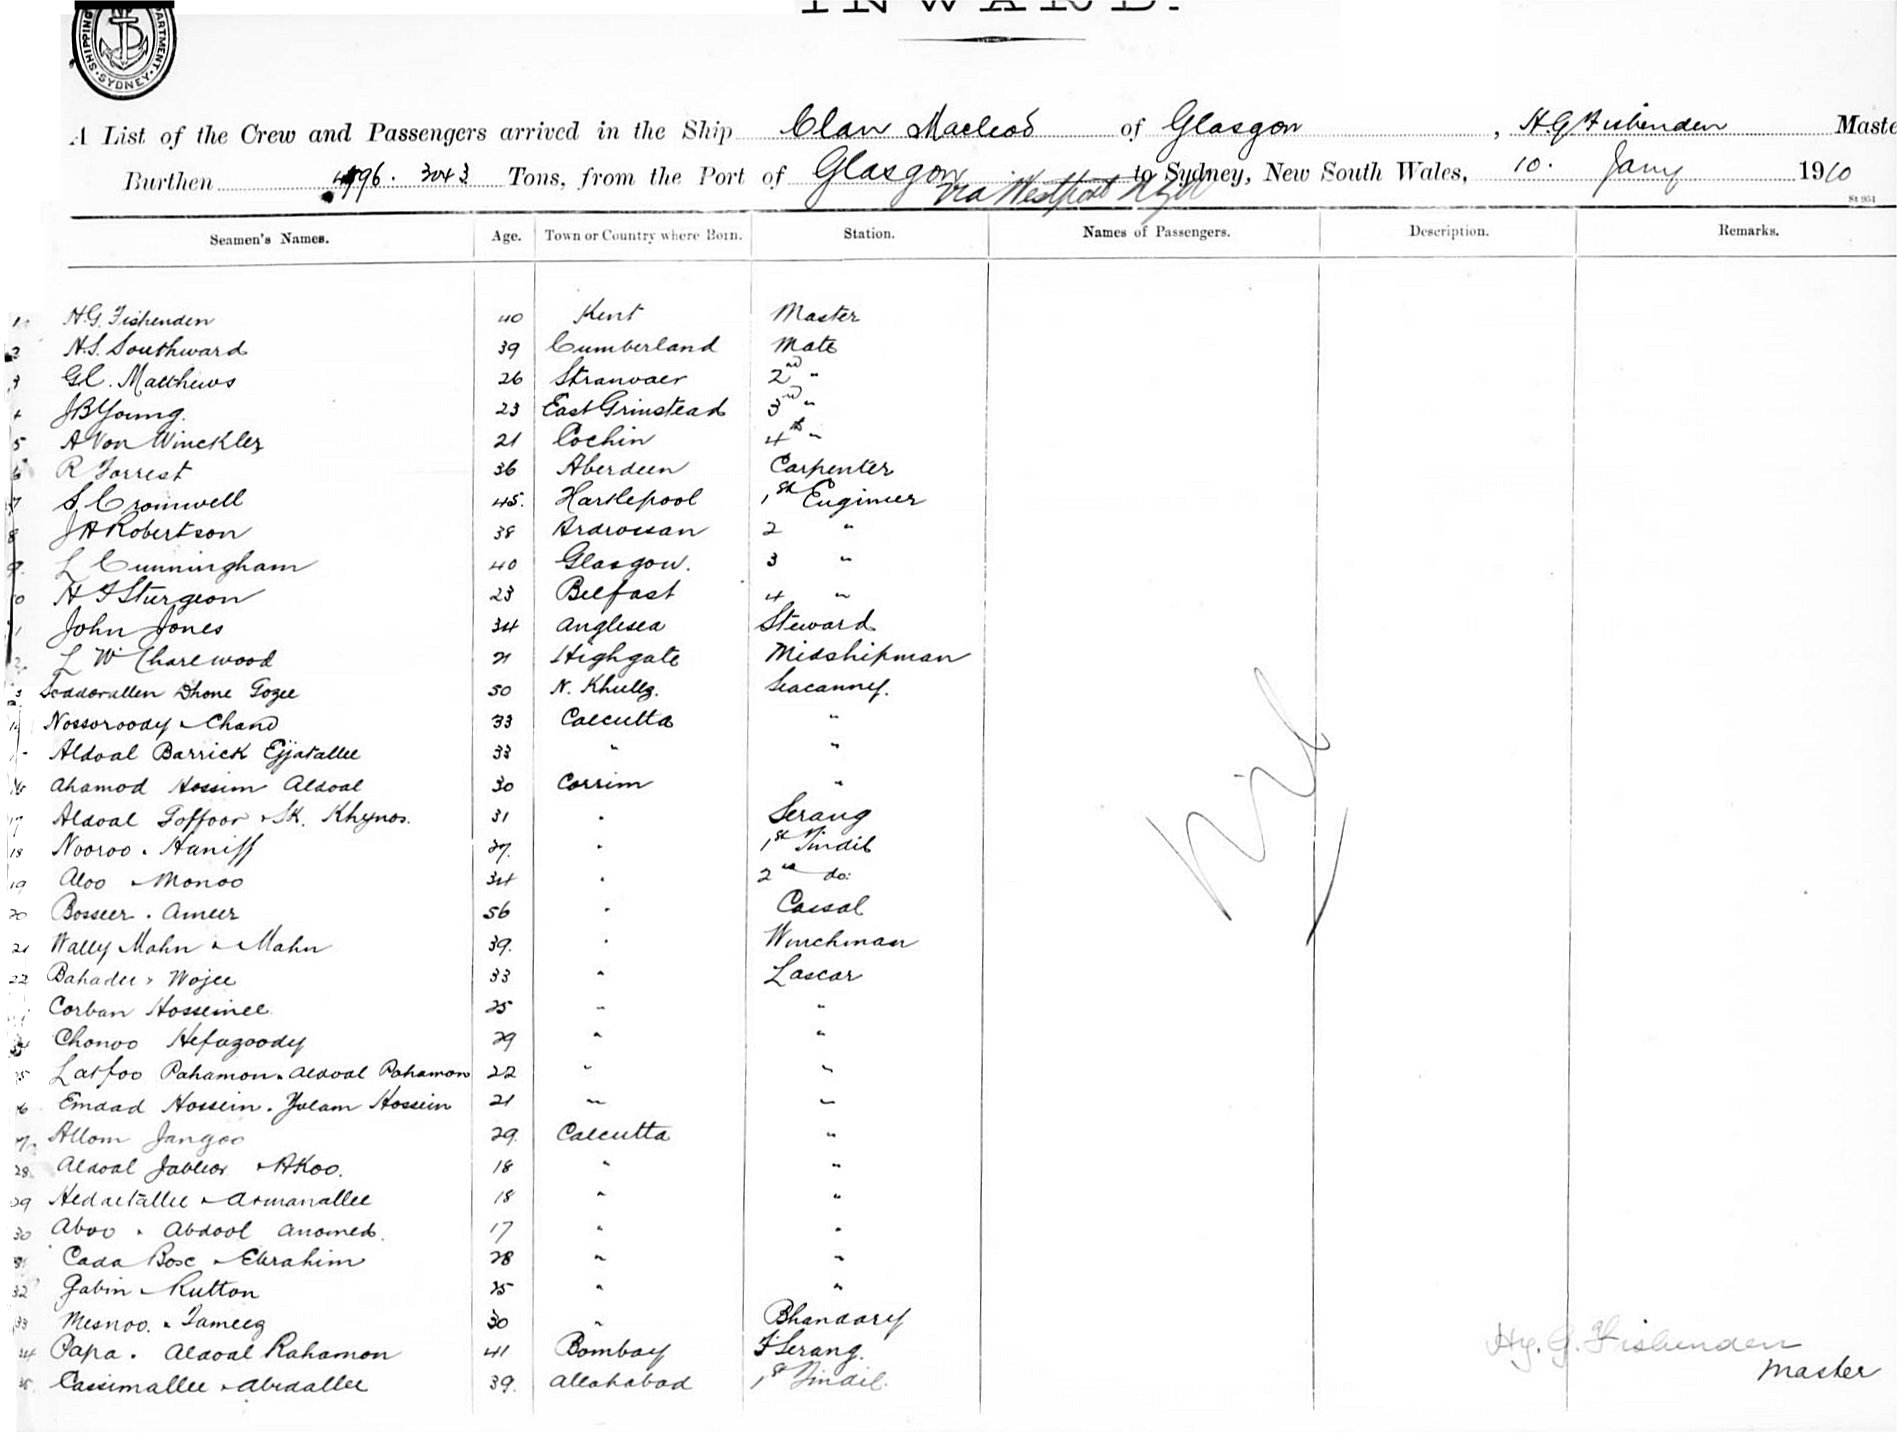 INWARD.
SHIPPING DEPARTMENT SYDNEY
A List of the Crew and Passengers arrived in the Ship Clan Macleod of Glasgow, H.G. Fishenden Maste
Burthen 4796. 3043 Tons, from the Port of Glasgow to Sydney, New South Wales, 10. Jany 1910
via Westport NZ
St 951
Seamen's Names. Age. Town or Country where Born. Station. Names of Passengers. Description. Remarks.
1 H.G. Fishenden 40 Kent Master
2 H.S. Southward 39 Cumberland Mate
3 G.C. Matthews 26 Stranraer 2nd "
4 J B Young. 23 East Grinstead 3rd "
5 A Von Winckler 21 Cochin 4th "
6 R Forrest 36 Aberdeen Carpenter
7 S. Cromwell 45. Hartlepool 1st Engineer
8 J A Robertson 38 Ardrossan 2 "
9. L Cunningham 40 Glasgow. 3 "
0 H F Sturgeon 23 Belfast 4 "
1 John Jones 34 Anglesea Steward
2. L W Charewood 21 Highgate Midshipman
3 Soddorallen Dhone Gozee 50 N. Khully. Seacunny.
14 Nossoroody Chand 33 Calcutta "
Aldoal Barrick Eyjatallee 33 " "
16 Ahamod Hossim Aldoal 30 Corrim "
17 Aldoal Goffoor Sk. Khynos. 31 " Serang
18 Nooroo. Haniff 37. " 1st Tindil
19 Aloo Monoo 34 " 2nd do:
20 Bosseer. Ameer 56 " Cassal
21 Wally Mahn Mahn 39. " Winchman
22 Bahadee Wojee 33 " Lascar
Corban Hosseinee 25 " "
24 Chonoo Hefazoody 29 " "
25 Latfoo Rahamon. Aldoal Rahamon 22 " "
26 Emdad Hossein. Golam Hossein 21 " "
27. Allom Jangoo 29. Calcutta "
28. Aldoal Jabbor Akoo. 18 " "
29 Hedaetallee Asmanallee 18 " "
30 Aboo. Abdool Anomed. 17 " "
31 Cada Bose Ebrahim 28 " "
32 Gabin Rutton 25 " "
33 Mesnoo. Tameeg 30 " Bhandary
34 Papa. Aldoal Rahamon 41 Bombay F Serang.
35. Cassimallee Abedallee 39. Allahabad 1st Tindil.
Nil
Hy. G. Fishenden
Master